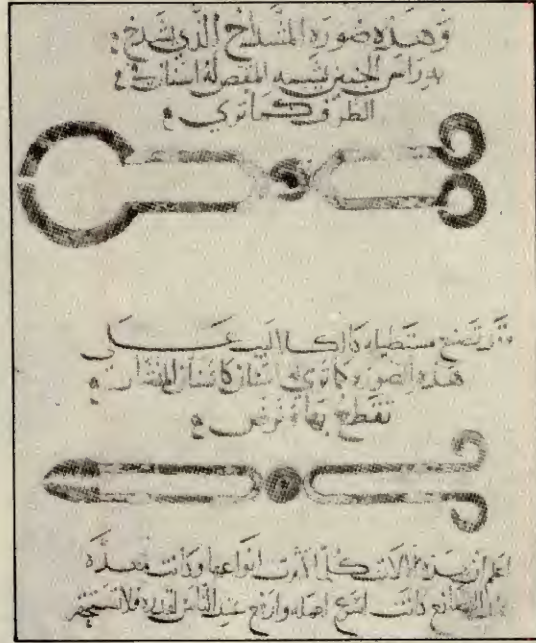 وهذه صورة المشداخ الذي يشدخ
به رأس الجنين يشبه المقص له أسنان في
الطرف كما ترى
وقد تصنع مستطيلة كالكلاليب على
هذه الصورة كما ترى لها أسنان كأسنان المنشار
تقطع بها وترض
اعلم أن هذه الآلات كلما كثرت أنواعها وكانت معدة
عند الصانع كانت أسرع لعمله وأرفع عند الناس لقدره فلا تستحقر